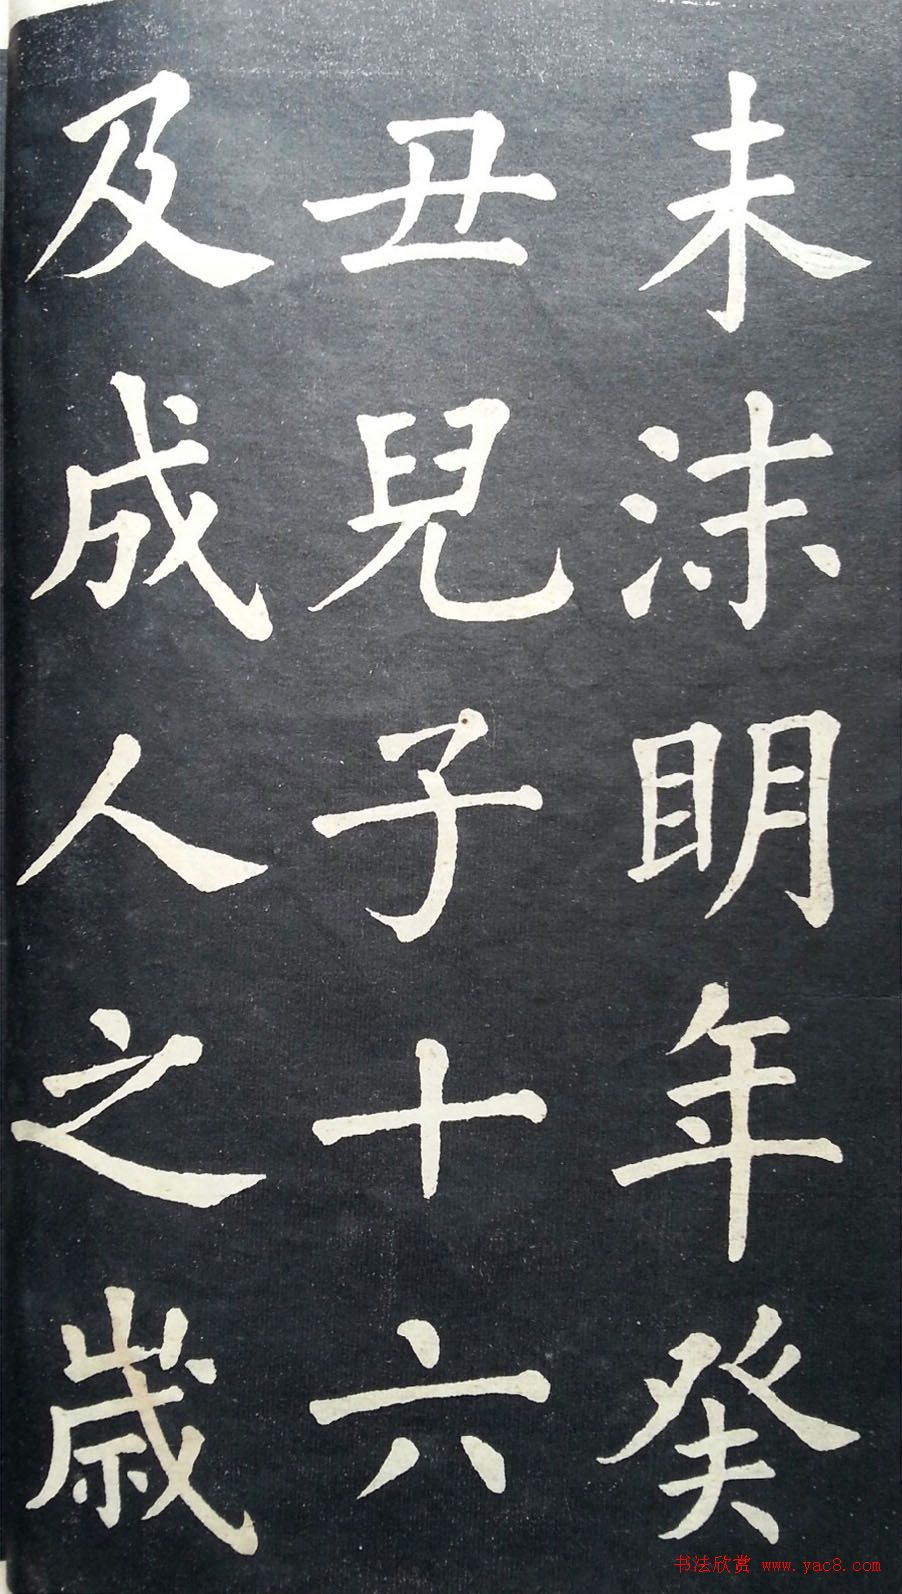 未沬明年癸
丑兒子十六
及成人之歲
书法欣赏 www.yac8.com